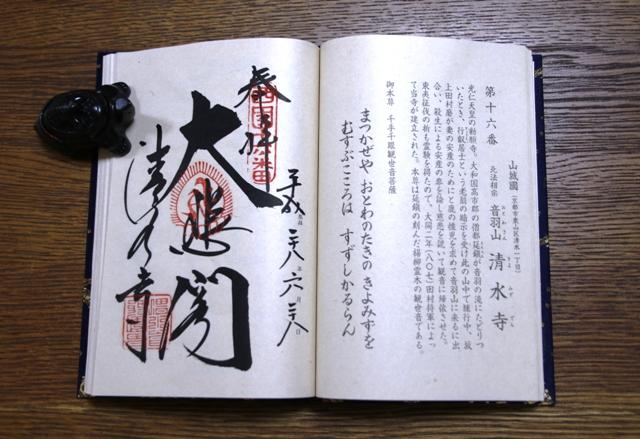 第十六番
山城國（京都市東山区清水一丁目）
北法相宗 音羽山 清水寺
光仁天皇の勅願寺、大和国高市郡の僧都延鎮が音羽の滝にたどりつ
いたとき、行叡居士という老翁の暗示を受け此の山中で練行中、坂
上田村麿が妻の安産のためにと鹿の を求めて音羽山に来るに出
合い、殺生による安産の非を諭し慈悲を説いて観音に帰依させた。
東夷征伐の折も霊験を得たので、大同二年（八〇七）田村将軍によっ
て当寺が建立された。本尊は延鎮の刻んだ楊柳霊木の観世音である。
御本尊 千手千眼観世音菩薩
まつかぜや おとわのたきの きよみずを
むすぶこころは すずしかるらん
平成二八年六月二八日
奉拝
西国十六番
大悲閣
清水寺